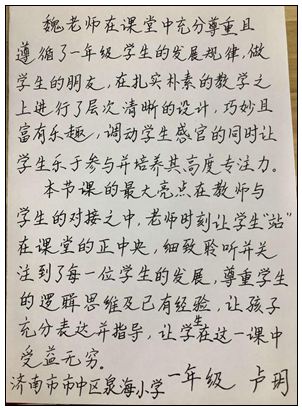 魏老师在课堂中充分尊重且
遵循了一年级学生的发展规律,做
学生的朋友,在扎实朴素的教学之
上进行了层次清晰的设计,巧妙且
富有乐趣,调动学生感官的同时让
学生乐于参与并培养其高度专注力。
本节课的最大亮点在教师与
学生的对接之中,老师时刻让学生“站”
在课堂的正中央,细致聆听并关
注到了每一位学生的发展,尊重学生
的逻辑思维及已有经验,让孩子
充分表达并指导,让学生在这一课中
受益无穷。
济南市市中区泉海小学 一年级 卢玥